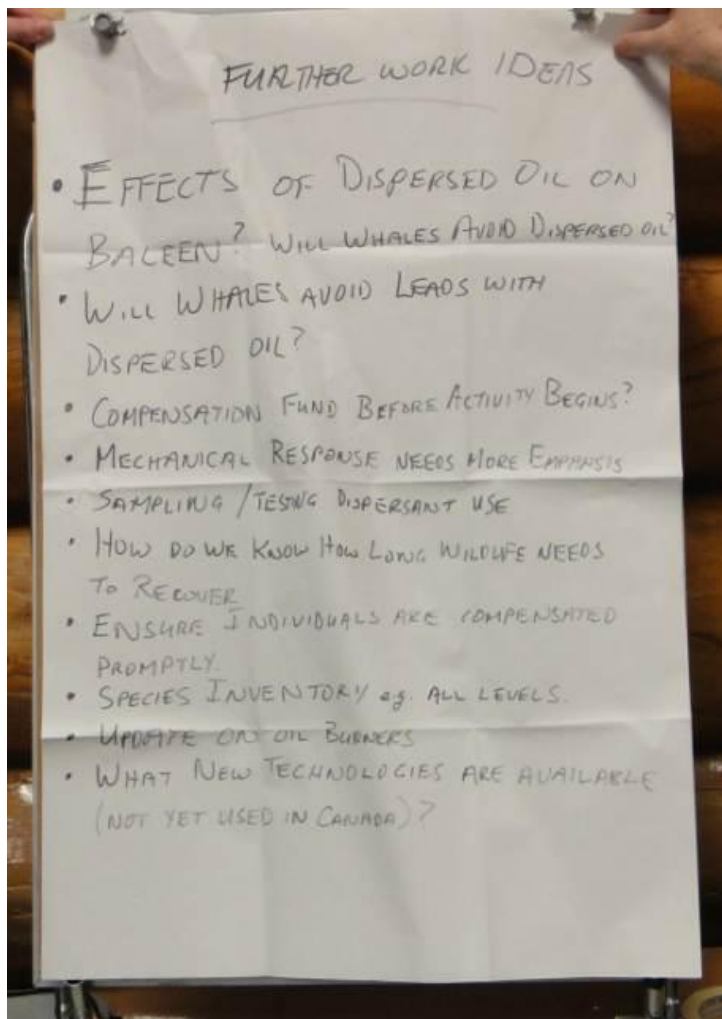 FURTHER WORK IDEAS
• EFFECTS OF DISPERSED OIL ON
BALEEN? WILL WHALES AVOID DISPERSED OIL?
• WILL WHALES AVOID LEADS WITH
DISPERSED OIL?
• COMPENSATION FUND BEFORE ACTIVITY BEGINS?
• MECHANICAL RESPONSE NEEDS MORE EMPHASIS
• SAMPLING / TESTING DISPERSANT USE
• HOW DO WE KNOW HOW LONG WILDLIFE NEEDS
TO RECOVER
• ENSURE INDIVIDUALS ARE COMPENSATED
PROMPTLY.
• SPECIES INVENTORY e.g. ALL LEVELS.
• UPDATE ON OIL BURNERS
• WHAT NEW TECHNOLOGIES ARE AVAILABLE
(NOT YET USED IN CANADA)?